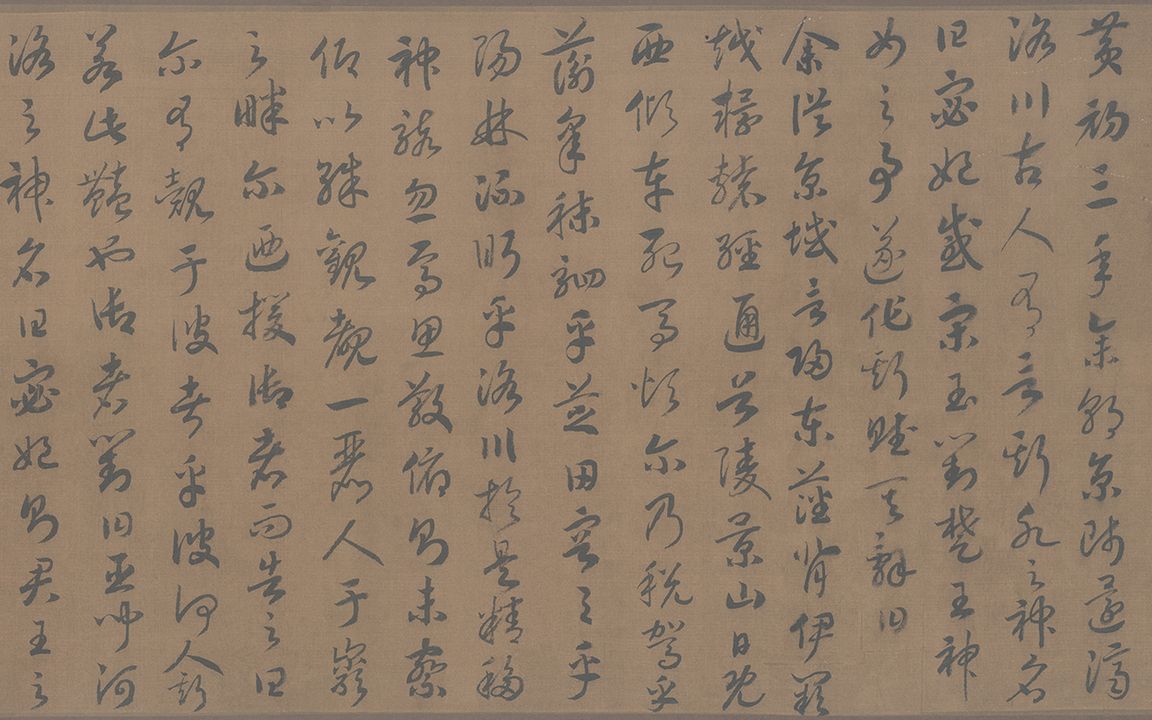 黄初三年余朝京師還濟
洛川古人有言斯水之神名
曰宓妃感宋玉對楚王神
女之事遂作斯賦其辭曰
余從京域言歸東藩背伊闕
越轘轅經通谷陵景山日既
西傾車殆馬煩尔乃税駕乎
蘅皋秣駟乎芝田容與乎
陽林流眄乎洛川於是精移
神駭忽焉思散俯則未察
仰以殊觀覩一麗人于巖
之畔尔迺援御者而告之曰
尔有覿于彼者乎彼何人斯
若此豔也御者對曰臣聞河
洛之神名曰宓妃則君王之